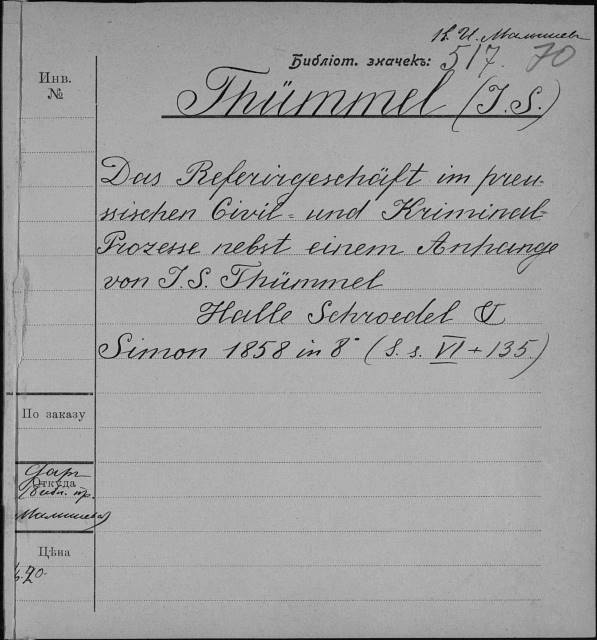 К. И. Малышев
Библіот. значекъ: 517. 70
Инв.
№
Thümmel (J. S.)
Das Referirgeschäft im preu-
ssischen Civil- und Kriminal-
Prozesse nebst einem Anhange
von J. S. Thümmel
Halle Schroedel &
Simon 1858 in 8° (S. s. VI + 135.)
По заказу
Даръ
Откуда
Малышева
Цѣна